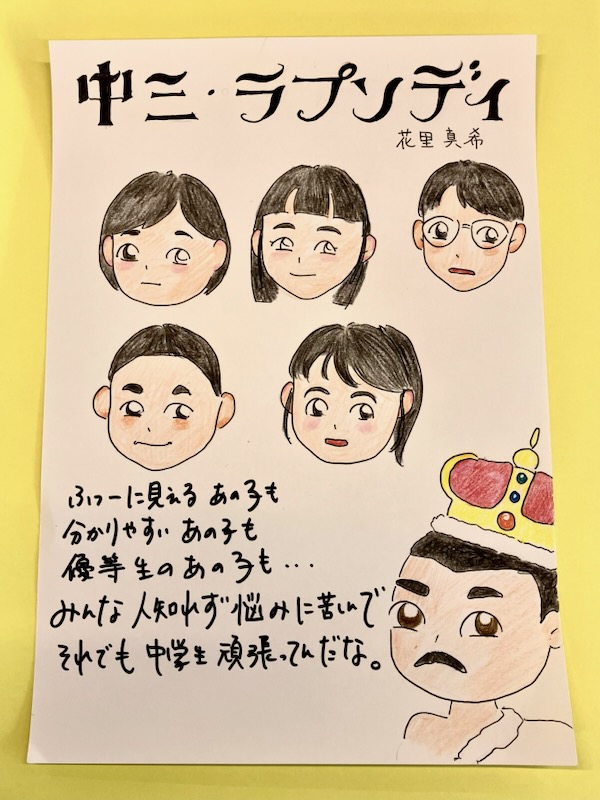 中三・ラプソディ
花里真希
ふつーに見える あの子も
分かりやすい あの子も
優等生の あの子も・・・
みんな 人知れず 悩みに苦しんで
それでも 中学生 頑張ってんだな。